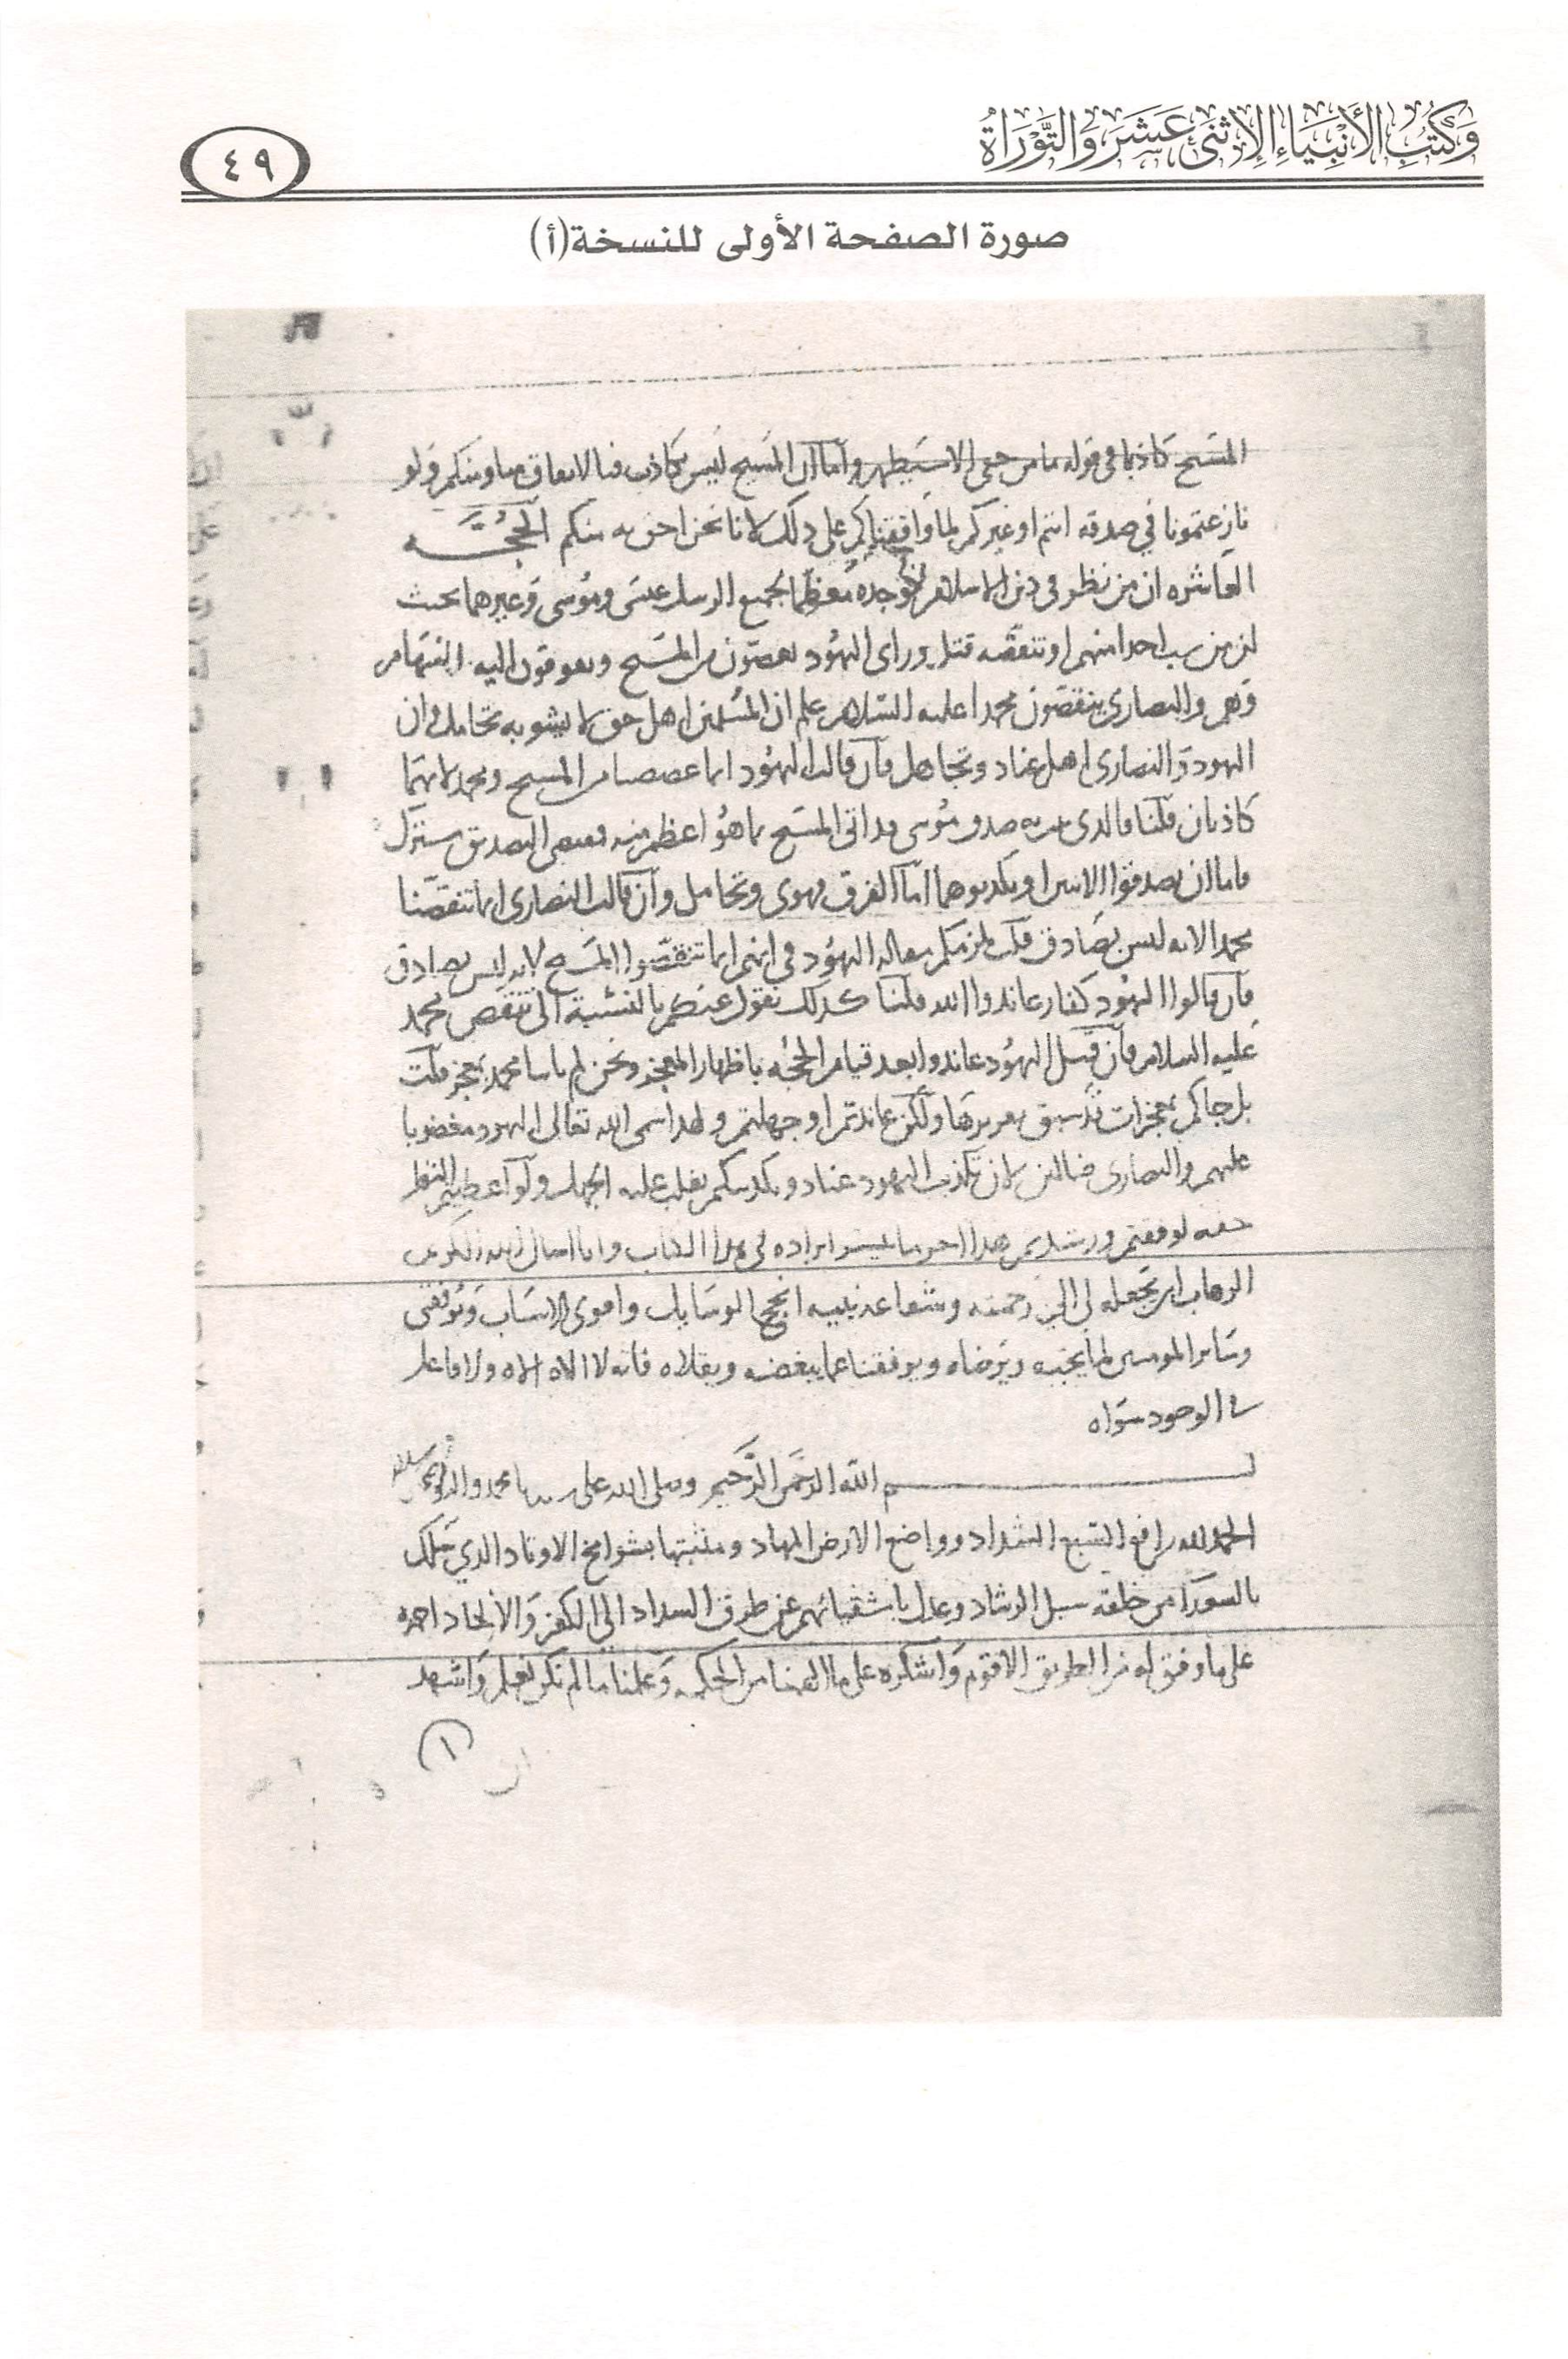 وَكُتُبِ الأَنْبِيَاءِ الِاثْنَيْ عَشَرَ وَالتَّوْرَاةُ
٤٩
صورة الصفحة الأولى للنسخة (أ)
المسيح كاذبا في قوله ما من خفي الا سيظهر واما ان المسيح ليس بكاذب فبالاتفاق منا ومنكم ولو
نازعتمونا في صدقه انتم او غيركم لما وافقناكم على ذلك لانا نحن احق به منكم الحجة
العاشره ان من نظر في دين الاسلام وجده معظما لجميع الرسل عيسى وموسى وغيرهما بحيث
ان من سب احدا منهم او تنقصه قتل وراى اليهود من المسيح
وهم والنصارى ينقصون محمدا عليه السلام علم ان المسلمين اهل حق لا يشوبه تحامل وان
اليهود والنصارى اهل عناد وتجاهل فان قالت اليهود انما من المسيح ومحمد لانهما
كاذبان قلنا فالذي به صدق موسى قد اتى المسيح بما هو اعظم منه التصديق مشترك
فاما ان يصدقوا الاثنين او يكذبوهما اما الفرق فهوى وتحامل وان قالت النصارى انما تنقصنا
محمدا لانه ليس بصادق قلت يلزمكم مقاله اليهود في انهم انما تنقصوا المسيح لانه ليس بصادق
فان قالوا اليهود كفار عاندوا الله قلنا كذلك نقول عنكم بالنسبة الى تنقص محمد
عليه السلام فان قيل اليهود عاندوا بعد قيام الحجه باظهار المعجز ونحن لم ياتنا محمد بمعجز قلت
بل جاكم بمعجزات قد سبق تقريرها ولكن عاندتم او جهلتم ولهذا سمى الله تعالى اليهود مغضوبا
عليهم والنصارى ضالين لان تكذيب اليهود عناد وتكذيبكم يغلب عليه الجهل ولو اعطيتم النظر
حقه لوفقتم ورشدتم هذا اخر ما تيسر ايراده في هذا الكتاب وانا اسال الله الكريم
الوهاب ان يجعله لي الى رحمته وشفاعة نبيه انجح الوسايل واقوى الاسباب ويوفقني
وساير المومنين لما يحبه ويرضاه ويوفقنا عما يبغضه ويقلاه فانه لا اله الا ولا فاعل
في الوجود سواه
بسم الله الرحمن الرحيم وصلى الله على سيدنا محمد واله وصحبه
الحمد لله رافع السبع الشداد وواضع الارض المهاد ومثبتها بشوامخ الاوتاد الذي سلك
من خلقه سبل الرشاد وعدل باشقيائهم عن طرق السداد الى الكفر والالحاد احمده
على ما وفق له من الطريق الاقوم واشكره على ما الهمنا من الحكم وعلمنا ما لم نكن نعلم واشهد
١